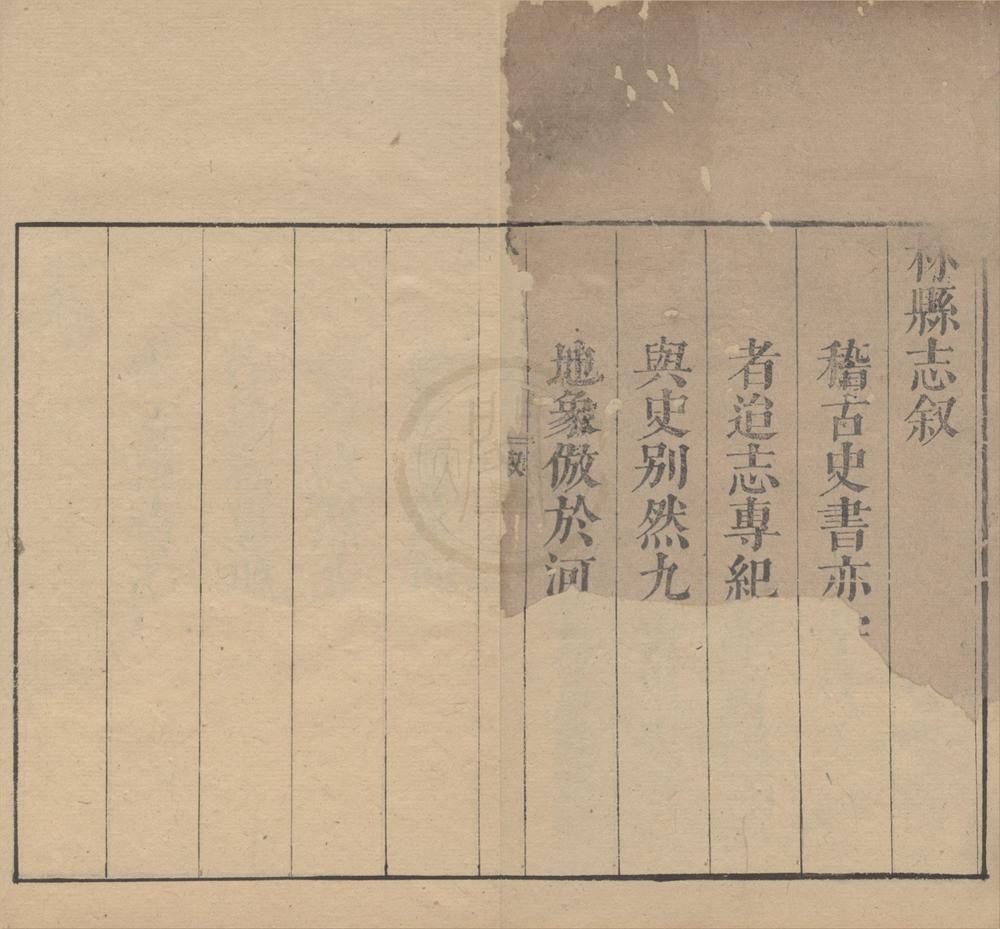 林縣志叙
稽古史書亦
者迨志專紀
與史別然九
地象倣於河
叙